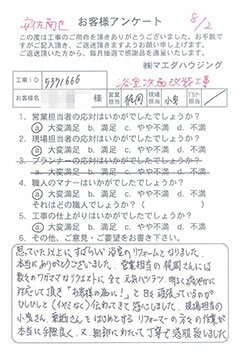 安佐南区 お客様アンケート 8/2
この度は工事のご用命を頂きありがとうございました。お手数で
すがご記入頂き、ご返送頂きますようお願い申し上げます。
ご返送頂いた方から、毎月抽選で感謝品を進呈いたします。
㈱マエダハウジング
工事ID 5371666
お客様名 様 営業担当 現場担当 小泉
1. 営業担当者の応対はいかがでしたでしょうか?
a 大変満足 b. 満足 c. やや不満 d. 不満
2. 現場担当者の応対はいかがでしたでしょうか?
a 大変満足 b. 満足 c. やや不満 d. 不満
3. プランナーの応対はいかがでしたでしょうか?
a. 大変満足 b. 満足 c. やや不満 d. 不満
4. 職人のマナーはいかがでしたでしょうか?
a 大変満足 b. 満足 c. やや不満 d. 不満
それはどの職人でしょうか?( )
5. 工事の仕上がりはいかがでしたでしょうか?
a 大変満足 b. 満足 c. やや不満 d. 不満
6. その他、ご意見・ご要望をお書き下さい。
思っていた以上に、すばらしい浴室のリフォームとなりました。
本当にありがとうございました。営業担当の さんには
数々のワガママなリクエストに全て
対応して頂き「お客様の為に!」と日々頑張っているのが
ひしひしと 伝わってきて感心しました。現場担当の
小泉さん、 をはじめとするリフォーマーの方々の作業が
本当に手際良く、又、細部にわたって丁寧で感激致しました